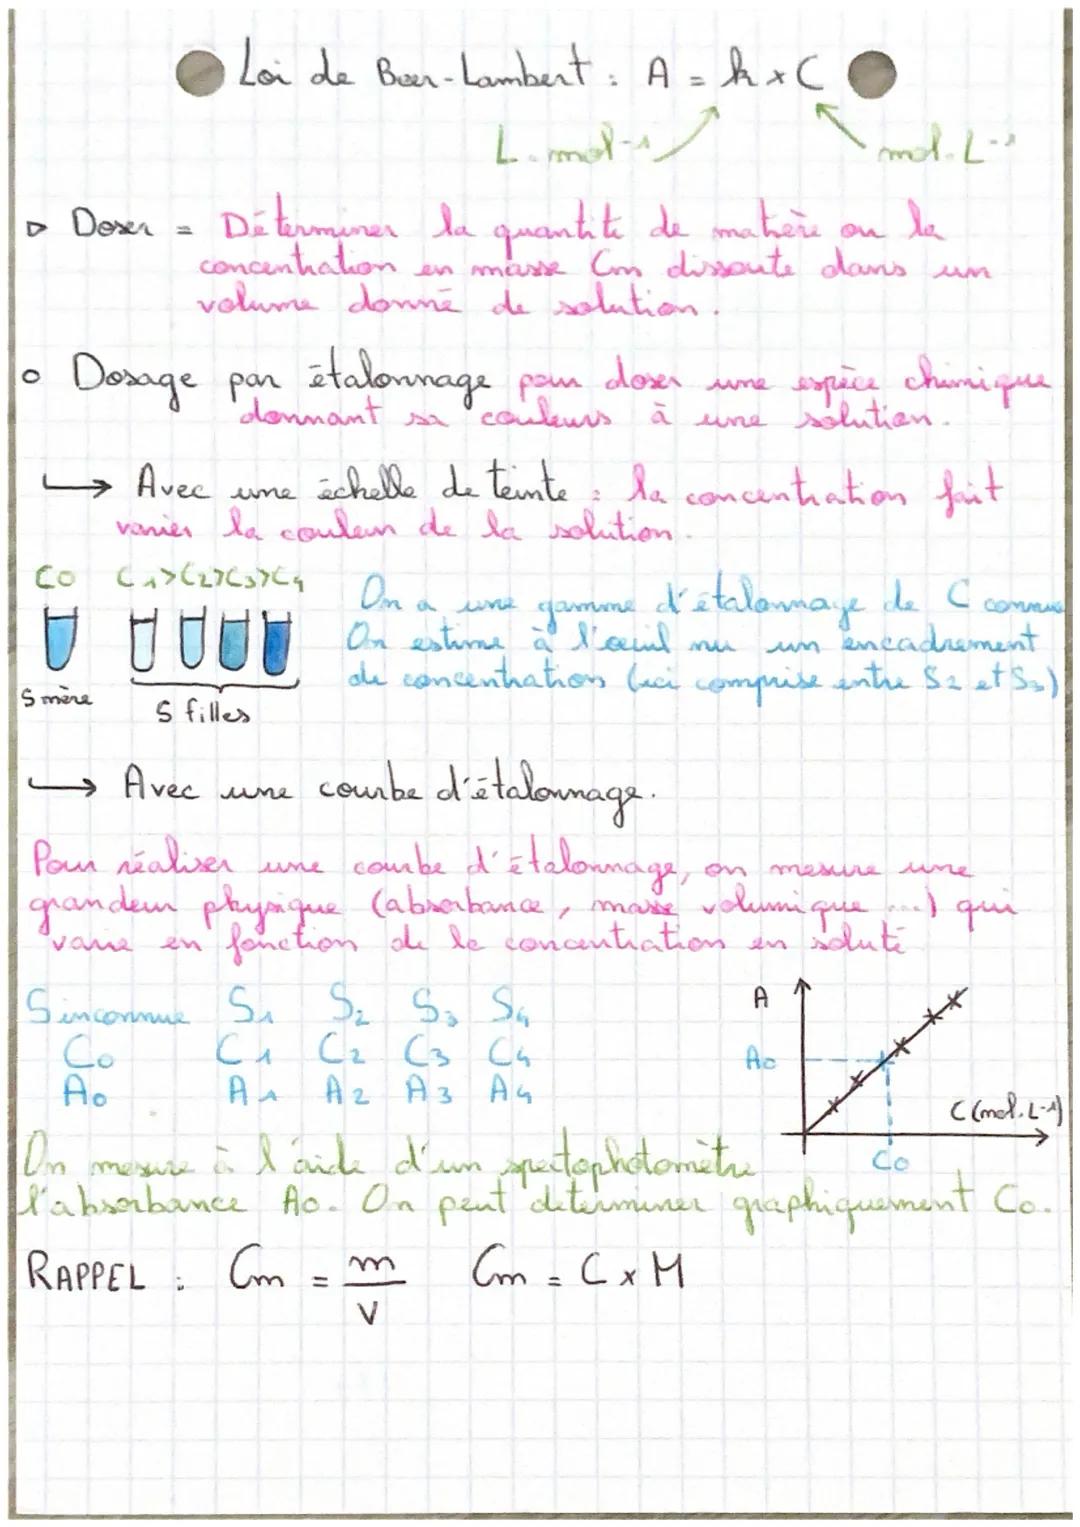 Loi de Beer-Lambert : A = k x C
L.mol-1 mol.L-1
▷ Doser = Déterminer la quantité de matière ou la
concentration en masse Cm dissoute dans un
volume donné de solution.
○ Dosage par étalonnage pour doser une espèce chimique
donnant sa couleurs à une solution.
↳ Avec une échelle de teinte : la concentration fait
varier la couleur de la solution.
C0 C1>C2>C3>C4
On a une gamme d'étalonnage de C connue
On estime à l'œuil nu un encadrement
de concentration (ici comprise entre S2 et S3)
S mère
S filles
↳ Avec une courbe d'étalonnage.
Pour réaliser une courbe d'étalonnage, on mesure une
grandeur physique (absorbance, masse volumique ...) qui
varie en fonction de le concentration en soluté
S inconnue S1 S2 S3 S4
C0 C1 C2 C3 C4
A0 A1 A2 A3 A4
A
A0
C (mol.L-1)
C0
On mesure à l'aide d'un spectophotomètre
l'absorbance A0. On peut déterminer graphiquement C0.
RAPPEL : Cm = m/V Cm = C x M